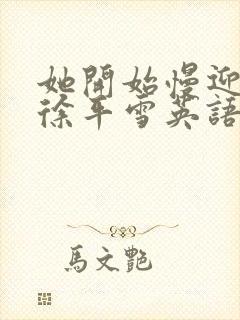 她開始慢迎
徐平雪英語
馬文艷